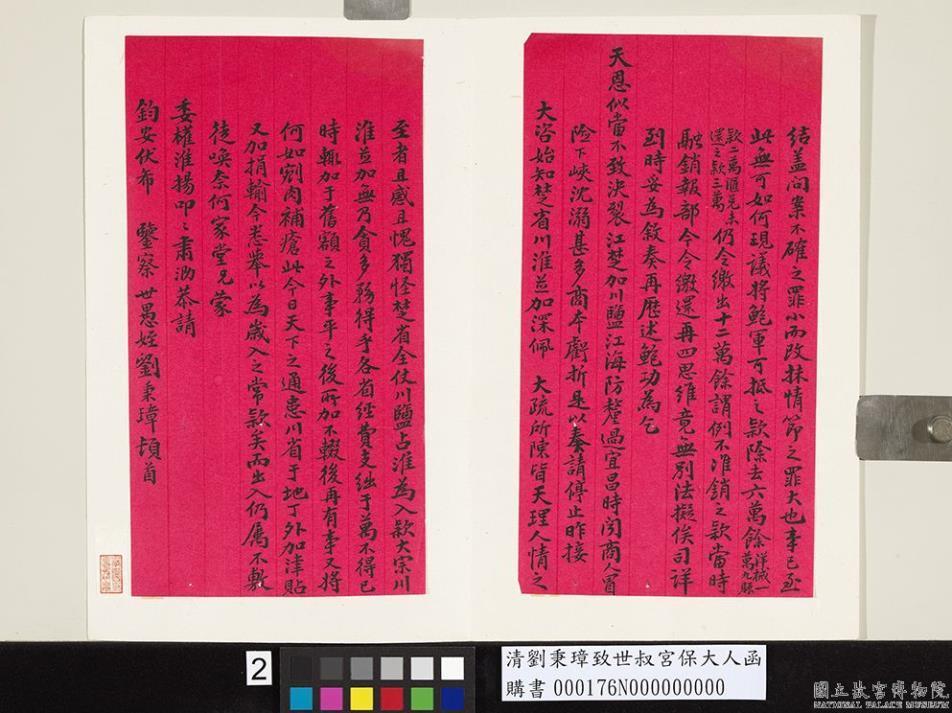 結蓋問案不確之罪小而改抹情節之罪大也事已至
此無可如何現議將鮑軍可抵之款除去六萬餘洋械一萬九縣
款二萬滙兑未還之款三萬仍令繳出十二萬餘謂例不准銷之款當時
融銷報部今令繳還再四思維竟無別法擬俟司詳
到時妥為敘奏再歷述鮑功為乞
天恩似當不致決裂江楚加川鹽江海防釐過宜昌時問商人冒
險下峽沈溺甚多商本虧折是以奏請停止昨接
大咨始知楚省川淮並加深佩　大疏所陳皆天理人情之
至者且感且愧獨怪楚省全仗川鹽占淮為入款大宗川
淮並加無乃貪多務得乎各省經費支絀于萬不得已
時輒加于舊額之外事平之後所加不輟後再有事又將
何如剜肉補瘡此今日天下之通患川省于地丁外加津貼
又加捐輸今悉舉以為歲入之常款矣而出入仍屬不敷
徒喚奈何家堂兄蒙
委權淮揚叩叩肅泐恭請
鈞安伏希　鑒察世愚姪劉秉璋頓首
2
清劉秉璋致世叔宮保大人函
購書 000176N000000000
國立故宮博物院
NATIONAL PALACE MUSEUM